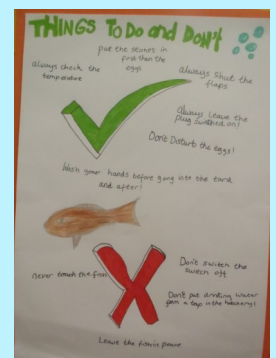 THINGS To Do and Don't
put the stones in
first than the
eggs
always check the
temperature
Always Shut the
flaps
Always Leave the
plug switched on!
Don't Disturb the eggs!
Wash your hands before going into the tank
and after!
never touch the fish!
Don't switch the
switch off
Don't put drinking water
from a tap in the hatchery!
Leave the fish in peace